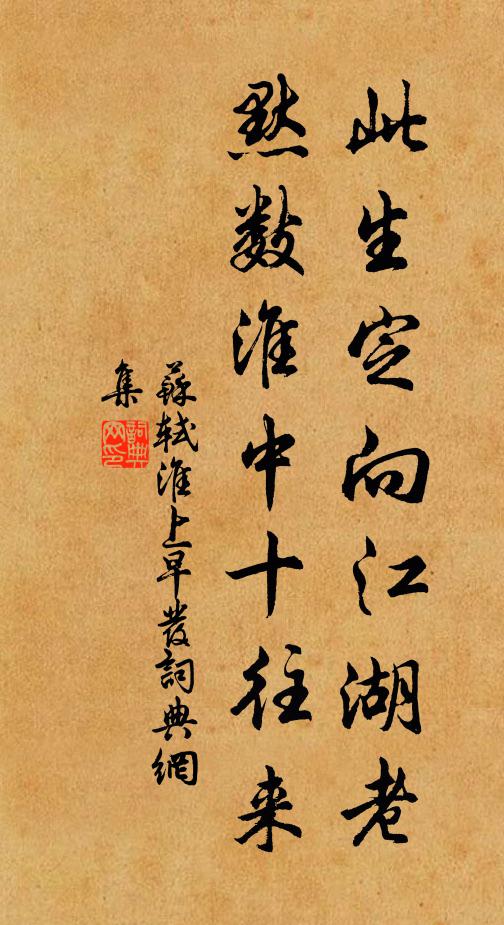 此生定向江湖老
默数淮中十往来
蘇軾淮上早發詞典網
集
詞典
网印